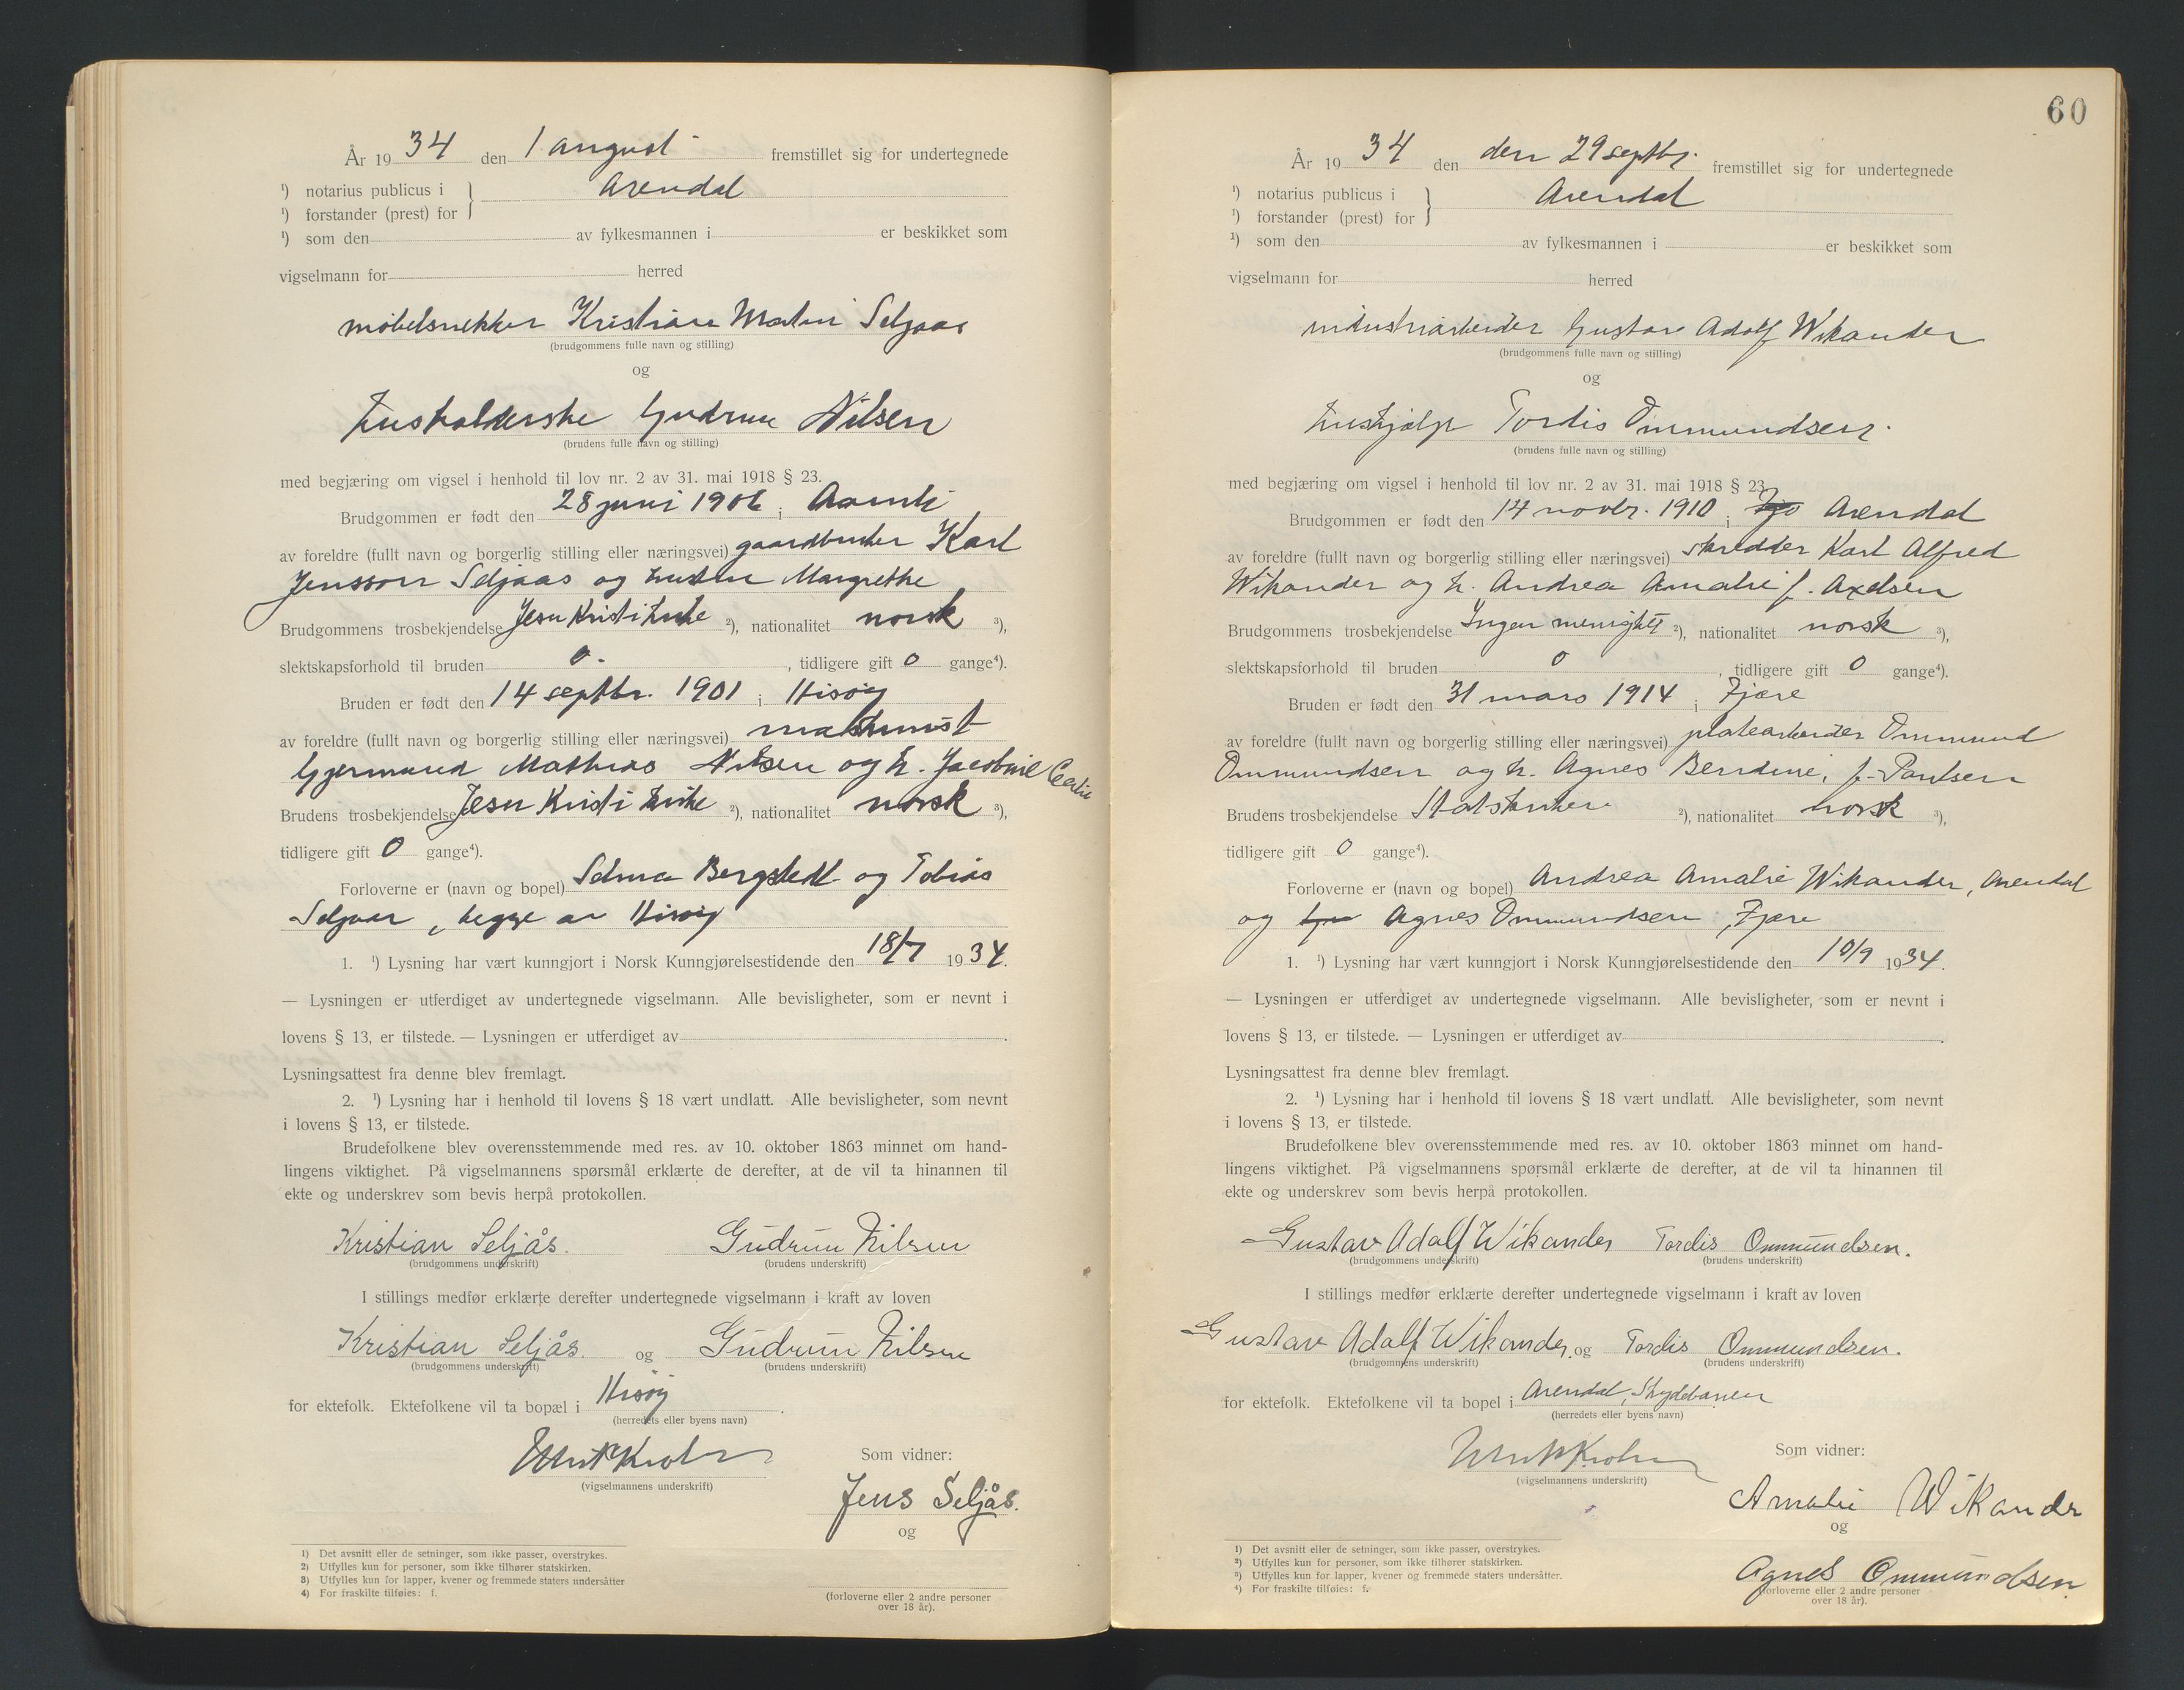 År 19 34 den 1 august fremstillet sig for undertegnede
¹) notarius publicus i
Arendal
¹) forstander (prest) for
¹) som den av fylkesmannen i er beskikket som
vigselmann for herred
møbelsnekker Kristian Martin Seljaas
(brudgommens fulle navn og stilling)
og
husholderske Gudrun Nilsen
(brudens fulle navn og stilling)
med begjæring om vigsel i henhold til lov nr. 2 av 31. mai 1918 § 23.
Brudgommen er født den 28 juni 1906 i Aamli
av foreldre (fullt navn og borgerlig stilling eller næringsvei) gaardbruker Karl
Jensson Seljaas og hustru Margrethe
Brudgommens trosbekjendelse Jesu Kristi kirke ²), nationalitet norsk ³),
slektskapsforhold til bruden 0. , tidligere gift 0 gange⁴).
Bruden er født den 14 septbr. 1901 i Hisøy
av foreldre (fullt navn og borgerlig stilling eller næringsvei) maskinist
Gjermund Mathias Nilsen og h. Jacobine
Brudens trosbekjendelse Jesu Kristi kirke ²), nationalitet norsk ³),
tidligere gift 0 gange⁴).
Forloverne er (navn og bopel) Selma Bergstedt og Tobias
Seljaas, begge av Hisøy
1. ¹) Lysning har vært kunngjort i Norsk Kunngjørelsestidende den 18/7 1934.
— Lysningen er utferdiget av undertegnede vigselmann. Alle bevisligheter, som er nevnt i
lovens § 13, er tilstede. — Lysningen er utferdiget av .
Lysningsattest fra denne blev fremlagt.
2. ¹) Lysning har i henhold til lovens § 18 vært undlatt. Alle bevisligheter, som nevnt
i lovens § 13, er tilstede.
Brudefolkene blev overensstemmende med res. av 10. oktober 1863 minnet om hand-
lingens viktighet. På vigselmannens spørsmål erklærte de derefter, at de vil ta hinannen til
ekte og underskrev som bevis herpå protokollen.
Kristian Seljås. Gudrun Nilsen
(brudgommens underskrift) (brudens underskrift)
I stillings medfør erklærte derefter undertegnede vigselmann i kraft av loven
Kristian Seljås. og Gudrun Nilsen
(brudgommens underskrift) (brudens underskrift)
for ektefolk. Ektefolkene vil ta bopæl i Hisøy .
(herredets eller byens navn)
Som vidner:
(vigselmannens underskrift)
Jens Seljås.
og
1) Det avsnitt eller de setninger, som ikke passer, overstrykes.
2) Utfylles kun for personer, som ikke tilhører statskirken.
3) Utfylles kun for lapper, kvener og fremmede staters undersåtter
4) For fraskilte tilføies: f.
(forloverne eller 2 andre personer
over 18 år).
60
År 19 34 den den 29 septbr. fremstillet sig for undertegnede
¹) notarius publicus i
Arendal
¹) forstander (prest) for
¹) som den av fylkesmannen i er beskikket som
vigselmann for herred
industriarbeider Gustav Adolf Wikander
(brudgommens fulle navn og stilling)
og
hushjælp Tordis Ommundsen.
(brudens fulle navn og stilling)
med begjæring om vigsel i henhold til lov nr. 2 av 31. mai 1918 § 23.
Brudgommen er født den 14 novbr. 1910 i Arendal
av foreldre (fullt navn og borgerlig stilling eller næringsvei) skredder Karl Alfred
Wikander og h. Andrea Amalie f. Axelsen
Brudgommens trosbekjendelse Ingen menighet ²), nationalitet norsk ³),
slektskapsforhold til bruden 0 , tidligere gift 0 gange⁴).
Bruden er født den 31 mars 1914 i Fjære
av foreldre (fullt navn og borgerlig stilling eller næringsvei) platearbeider Ommund
Ommundsen og h. Agnes Berdine, f. Paulsen
Brudens trosbekjendelse Statskirken ²), nationalitet norsk ³),
tidligere gift 0 gange⁴).
Forloverne er (navn og bopel) Andrea Amalie Wikander, Arendal
og Agnes Ommundsen, Fjære
1. ¹) Lysning har vært kunngjort i Norsk Kunngjørelsestidende den 10/9 1934.
— Lysningen er utferdiget av undertegnede vigselmann. Alle bevisligheter, som er nevnt i
lovens § 13, er tilstede. — Lysningen er utferdiget av .
Lysningsattest fra denne blev fremlagt.
2. ¹) Lysning har i henhold til lovens § 18 vært undlatt. Alle bevisligheter, som nevnt
i lovens § 13, er tilstede.
Brudefolkene blev overensstemmende med res. av 10. oktober 1863 minnet om hand-
lingens viktighet. På vigselmannens spørsmål erklærte de derefter, at de vil ta hinannen til
ekte og underskrev som bevis herpå protokollen.
Gustav Adolf Wikander Tordis Ommundsen.
(brudgommens underskrift) (brudens underskrift)
I stillings medfør erklærte derefter undertegnede vigselmann i kraft av loven
Gustav Adolf Wikander. og Tordis Ommundsen.
(brudgommens underskrift) (brudens underskrift)
for ektefolk. Ektefolkene vil ta bopel i Arendal, Skydebanen
(herredets eller byens navn)
Som vidner:
(vigselmannens underskrift)
Amalie Wikander
og
1) Det avsnitt eller de setninger, som ikke passer, overstrykes.
²) Utfylles kun for personer, som ikke tilhører statskirken.
³) Utfylles kun for lapper, kvener og fremmede staters undersåtter.
⁴) For fraskilte tilføies: f.
Agnes Ommundsen.
(forloverne eller 2 andre personer
over 18 år).